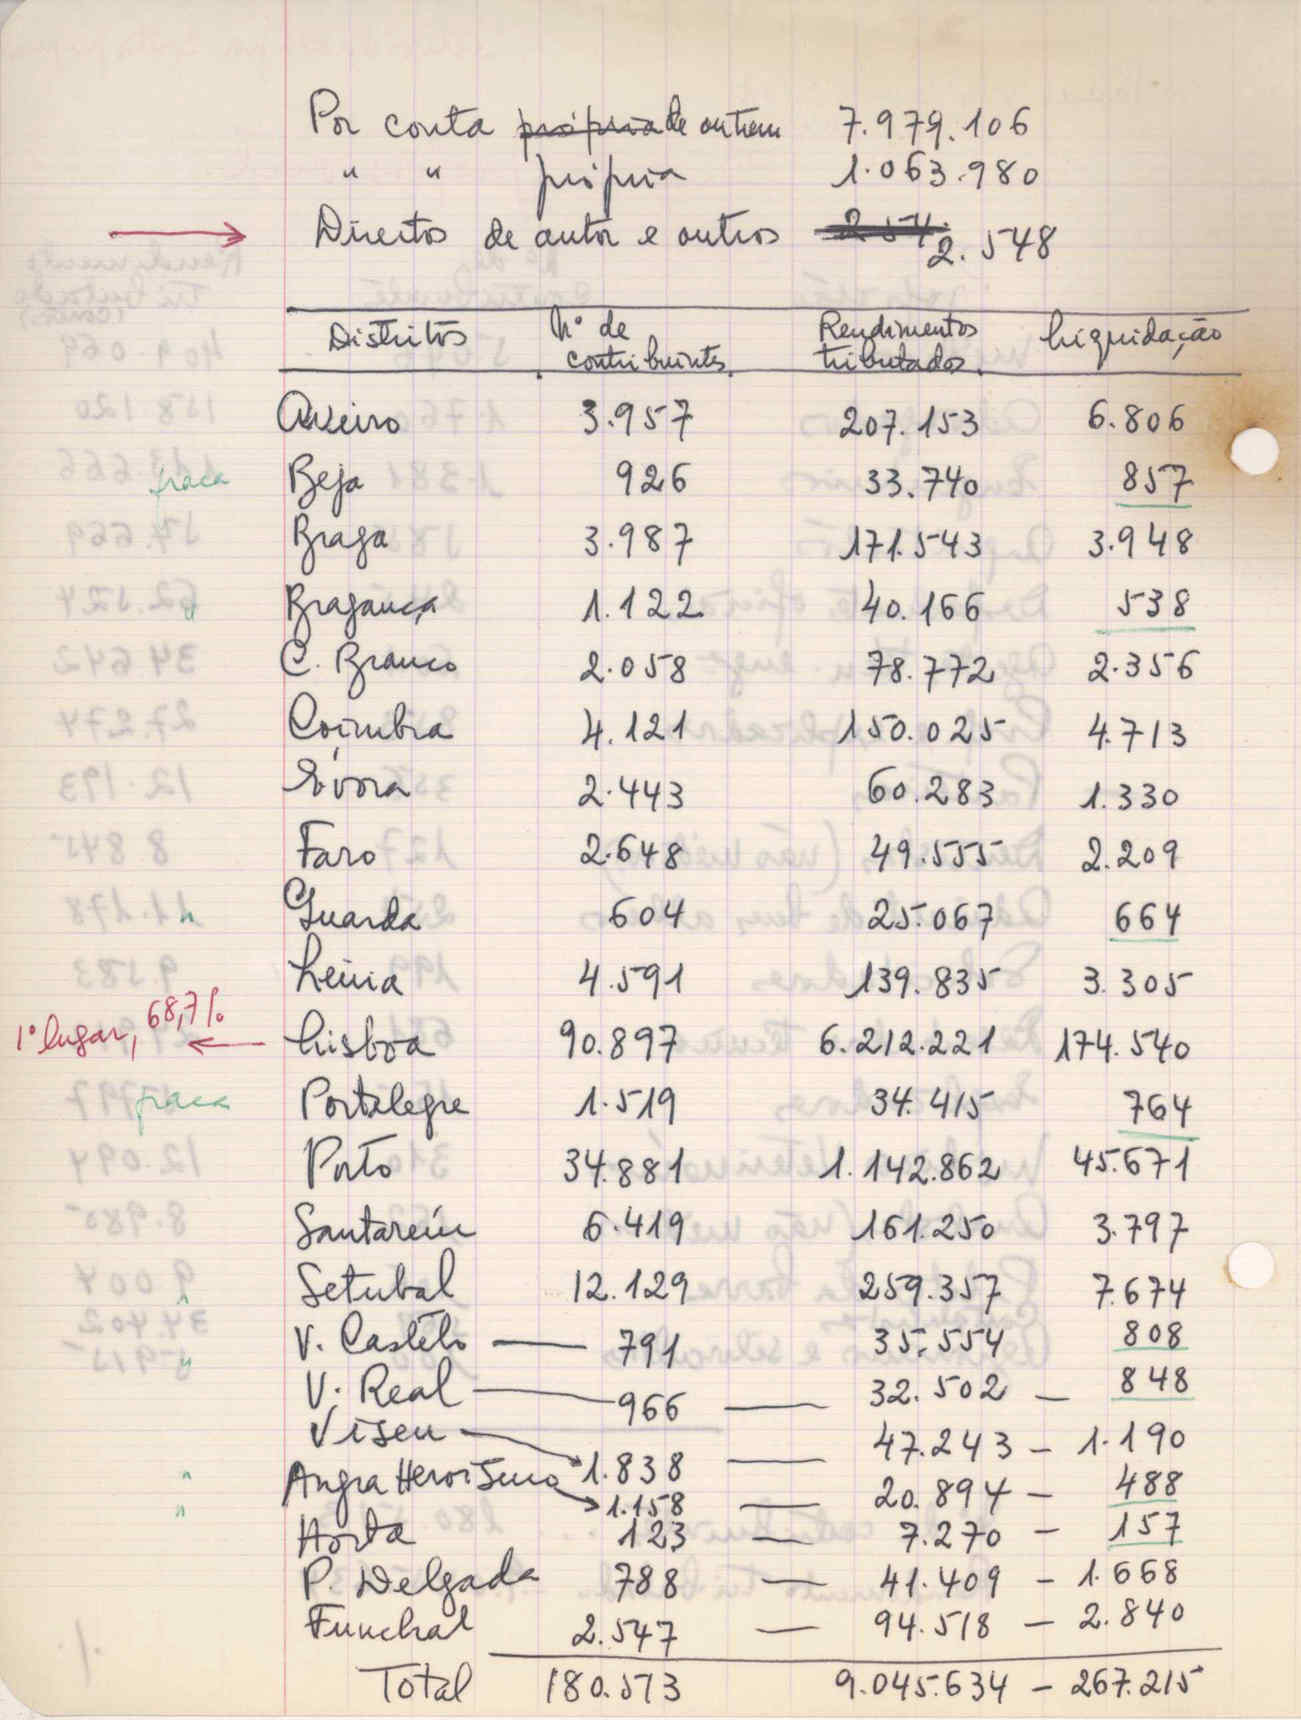 Por conta própria de outrem 7.979.106
" " própria 1.063.980
Direitos de autor e outros 254. 2.548
Distritos Nº de contribuintes Rendimentos tributados Liquidação
Aveiro 3.957 207.153 6.806
fraca Beja 926 33.740 857
Braga 3.987 171.543 3.948
" Bragança 1.122 40.166 538
C. Branco 2.058 78.772 2.356
Coimbra 4.121 150.025 4.713
Évora 2.443 60.283 1.330
Faro 2.648 49.555 2.209
" Guarda 604 25.067 664
Leiria 4.591 139.835 3.305
1º lugar, 68,7% Lisboa 90.897 6.212.221 174.540
fraca Portalegre 1.519 34.415 764
Porto 34.881 1.142.862 45.671
Santarém 6.419 161.250 3.797
Setubal 12.129 259.357 7.674
" V. Castelo — 791 35.554 808
" V. Real — 966 — 32.502 — 848
Viseu 1.838 — 47.243 — 1.190
" Angra Heroísmo 1.158 — 20.894 — 488
" Horta 123 — 7.270 — 157
P. Delgada 788 — 41.409 — 1.668
Funchal 2.547 — 94.518 — 2.840
Total 180.513 9.045.634 — 267.215